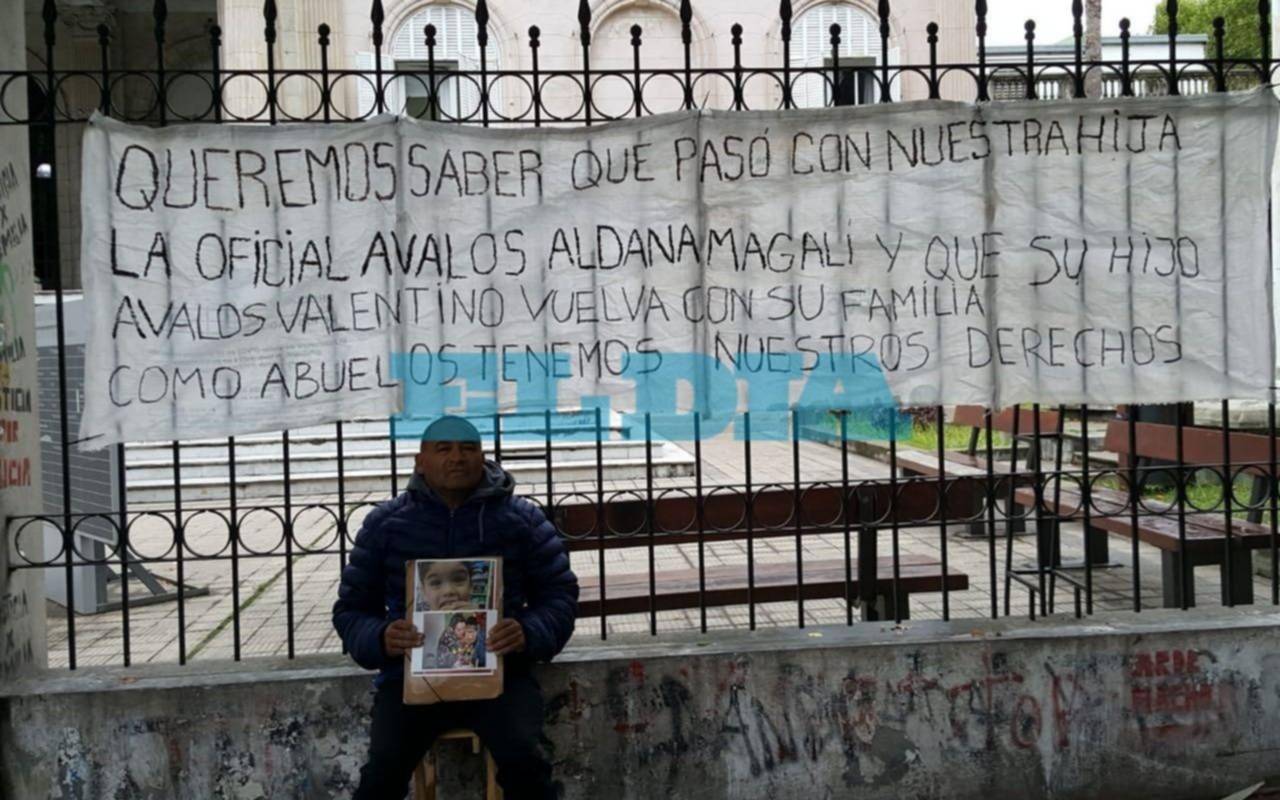 QUEREMOS SABER QUE PASÓ CON NUESTRA HIJA
LA OFICIAL AVALOS ALDANA MAGALI Y QUE SU HIJO
AVALOS VALENTINO VUELVA CON SU FAMILIA
COMO ABUELOS TENEMOS NUESTROS DERECHOS
EL DIA